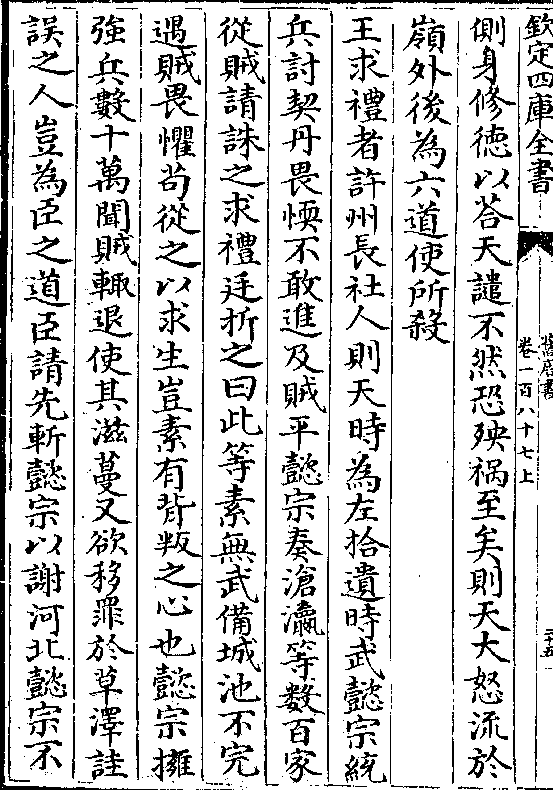 欽定四庫全書
舊唐書
卷一百八十七上
二十五
側身修德以荅天譴不然恐殃禍至矣則天大怒流於
嶺外後為六道使所殺
王求禮者許州長社人則天時為左拾遺時武懿宗統
兵討契丹畏愞不敢進及賊平懿宗奏滄瀛等數百家
從賊請誅之求禮廷折之曰此等素無武備城池不完
遇賊畏懼茍從之以求生豈素有背叛之心也懿宗擁
強兵數十萬聞賊輙退使其滋蔓又欲移罪於草澤詿
誤之人豈為臣之道臣請先斬懿宗以謝河北懿宗不